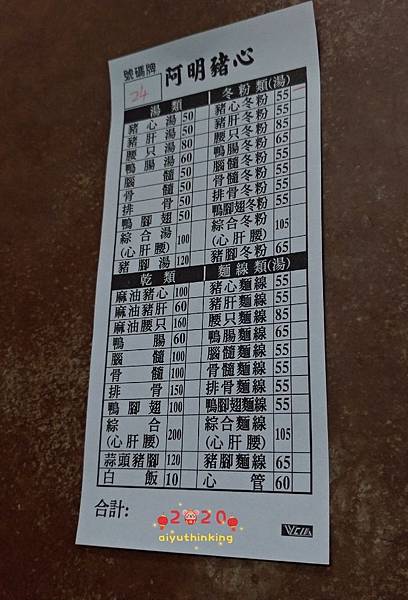 號碼牌
阿明豬心
24
湯類
豬心湯 50
豬肝湯 50
腰只湯 80
鴨腸湯 60
腦髓 50
骨髓 50
排骨 50
鴨腳翅 50
綜合湯
(心肝腰) 100
豬腳湯 120
冬粉類(湯)
豬心冬粉 55
豬肝冬粉 55
腰只冬粉 85
鴨腸冬粉 65
腦髓冬粉 55
骨髓冬粉 55
排骨冬粉 55
鴨腳翅冬粉 55
綜合冬粉
(心肝腰) 105
豬腳冬粉 65
乾類
麻油豬心 100
麻油豬肝 60
麻油腰只 160
鴨腸 60
腦髓 100
骨髓 100
排骨 150
鴨腳翅 100
綜合
(心肝腰) 200
蒜頭豬腳 120
白飯 10
麵線類(湯)
豬心麵線 55
豬肝麵線 55
腰只麵線 85
鴨腸麵線 65
腦髓麵線 55
骨髓麵線 55
排骨麵線 55
鴨腳翅麵線 55
綜合麵線
(心肝腰) 105
豬腳麵線 65
心管 60
合計:
2020
aiyuthinking